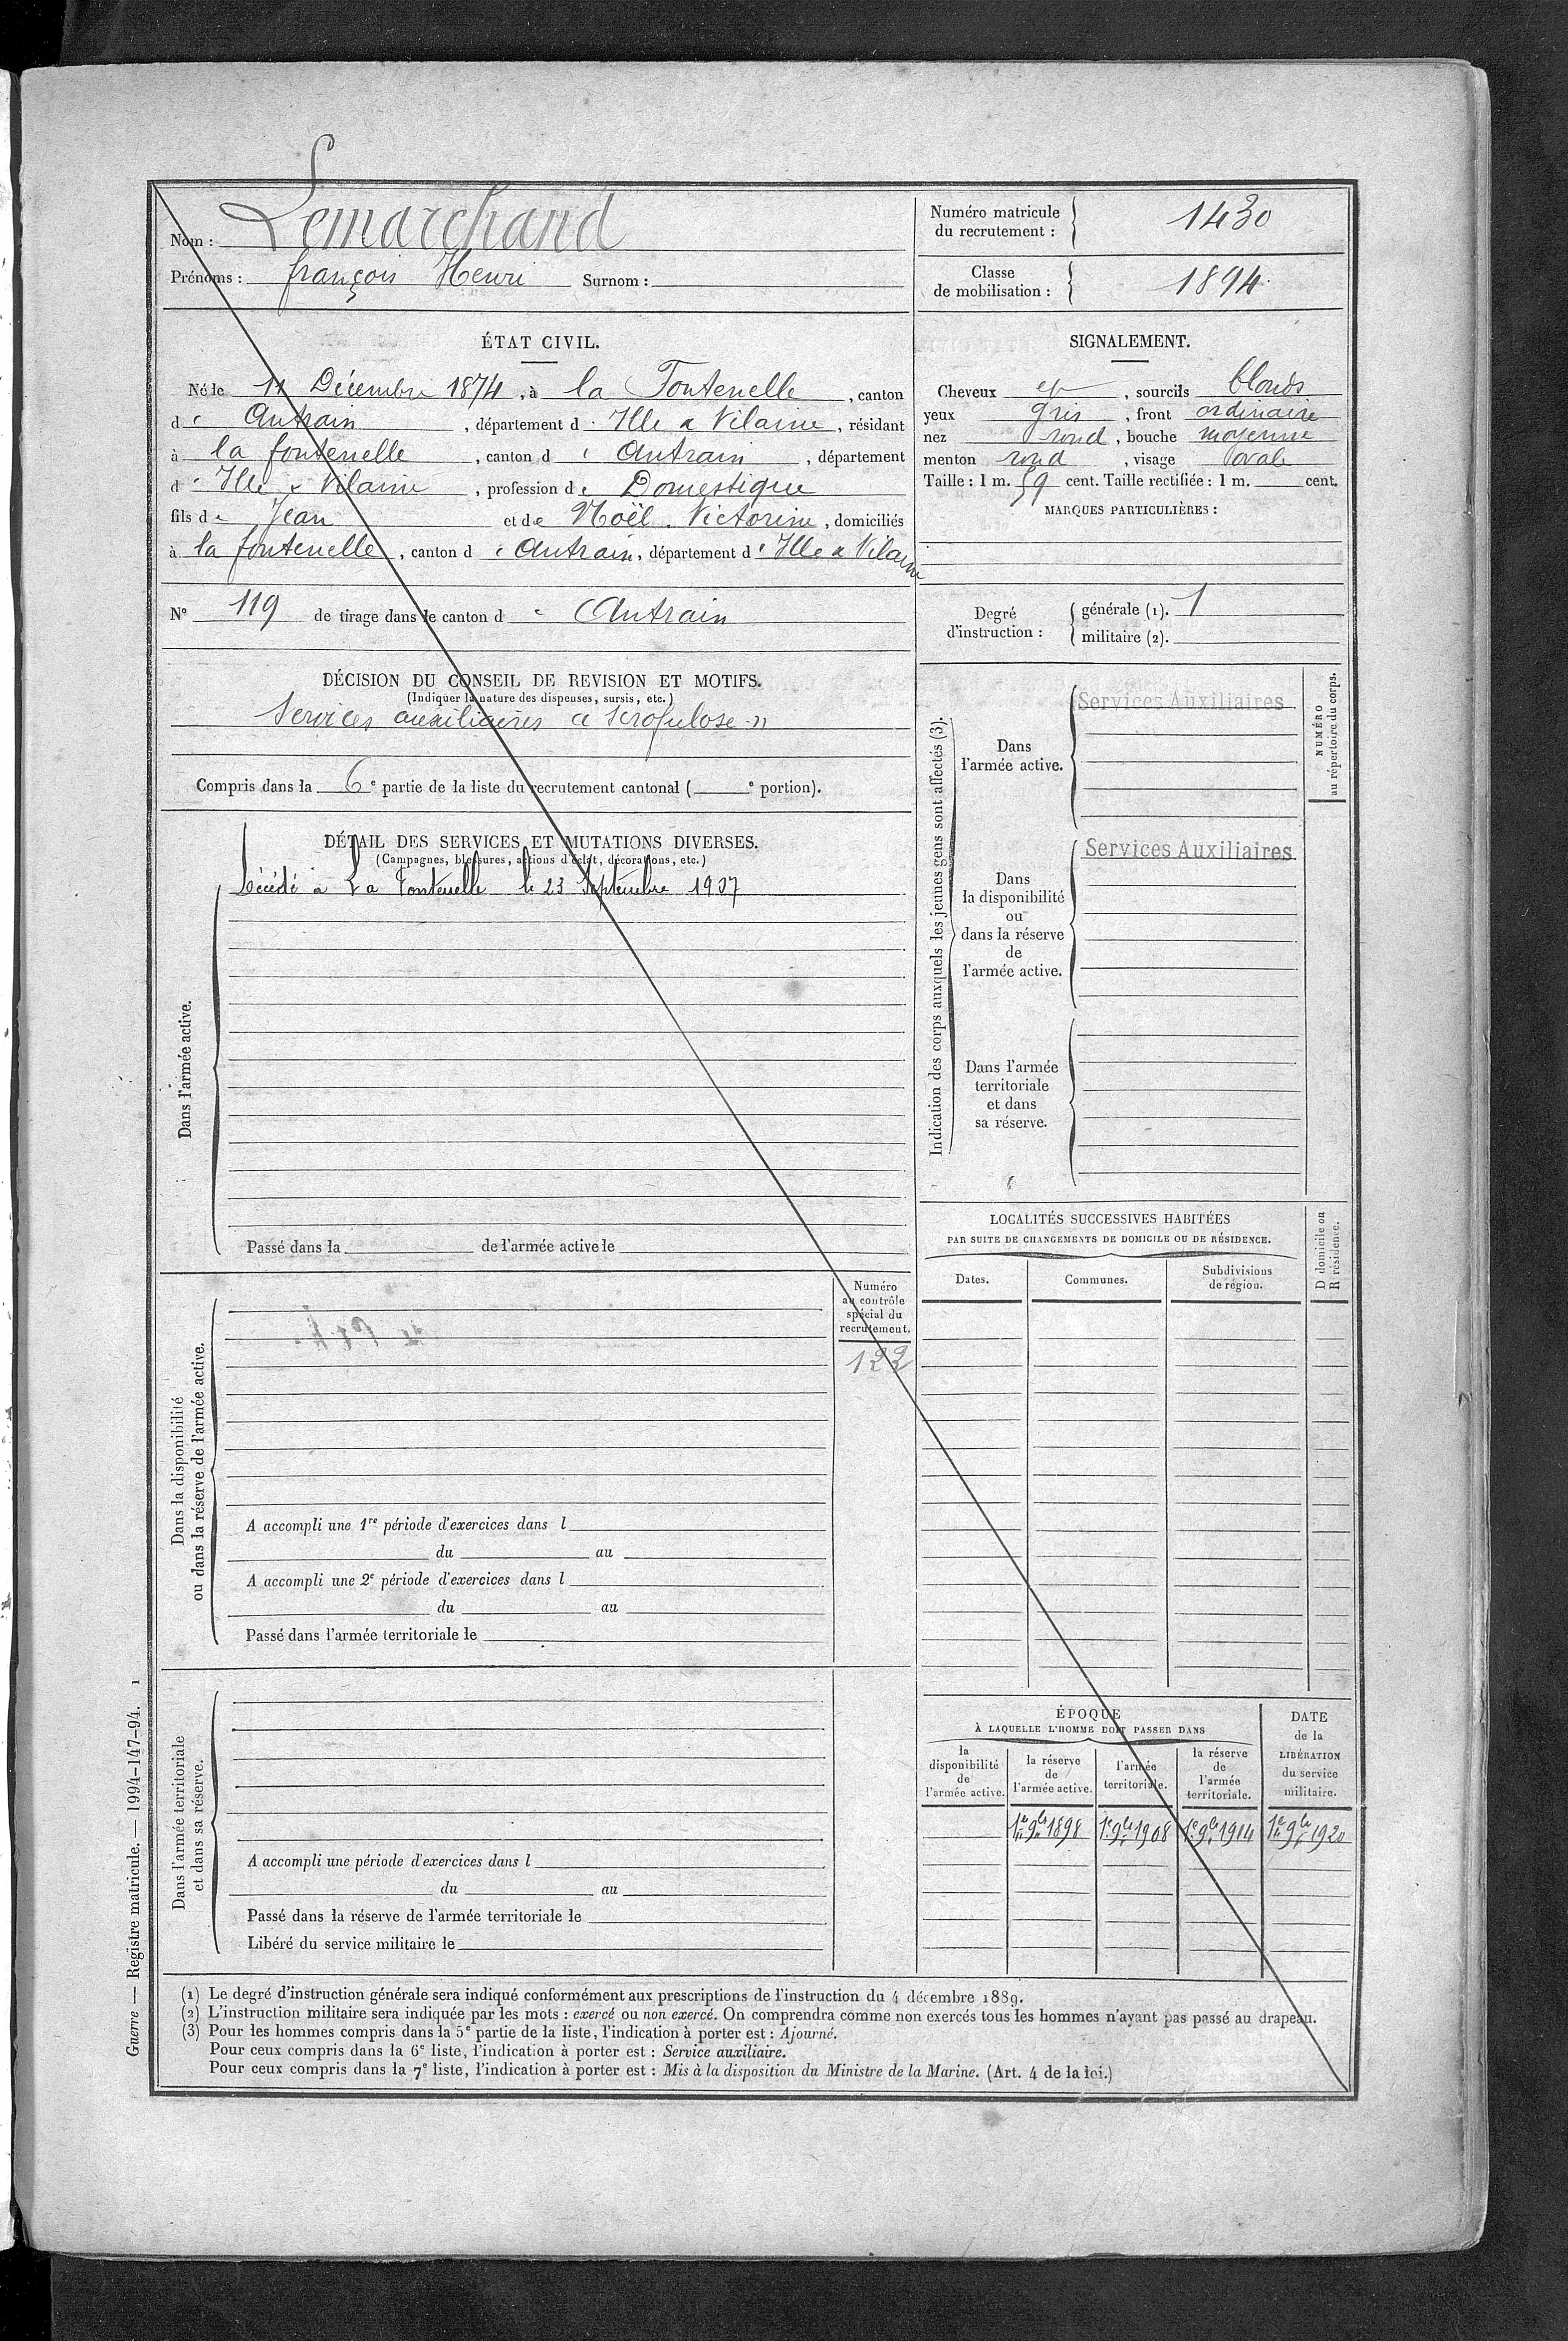 Nom : Lemarchand
Prénoms : françois Henri Surnom :
Numéro matricule du recrutement : 1430
Classe de mobilisation : 1894
ÉTAT CIVIL.
Né le 11 Décembre 1874, à la Fontenelle, canton
d e Antrain, département d Ille & Vilaine, résidant
à la fontenelle, canton d e Antrain, département
d Ille & Vilaine, profession de Domestique
fils de Jean et de Noël Victorine, domiciliés
à la fontenelle, canton d e Antrain, département d Ille & Vilaine
N° 119 de tirage dans le canton d e Antrain
DÉCISION DU CONSEIL DE REVISION ET MOTIFS.
(Indiquer la nature des dispenses, sursis, etc.)
Services auxiliaires « scrofulose »
Compris dans la 6e partie de la liste du recrutement cantonal ( e portion).
SIGNALEMENT.
Cheveux et, sourcils blonds
yeux gris, front ordinaire
nez rond, bouche moyenne
menton rond, visage oval
Taille : 1 m. 59 cent. Taille rectifiée : 1 m. cent.
MARQUES PARTICULIÈRES :
Degré d'instruction :
générale (1). 1
militaire (2).
DÉTAIL DES SERVICES ET MUTATIONS DIVERSES.
(Campagnes, blessures, actions d'éclat, décorations, etc.)
Dans l'armée active.
Décédé à La Fontenelle le 23 Septembre 1907
Passé dans la de l'armée active le
Indication des corps auxquels les jeunes gens sont affectés (3).
NUMÉRO
au répertoire du corps.
Dans
l'armée active.
Services Auxiliaires
Dans
la disponibilité
ou
dans la réserve
de
l'armée active.
Services Auxiliaires
Dans l'armée
territoriale
et dans
sa réserve.
LOCALITÉS SUCCESSIVES HABITÉES
PAR SUITE DE CHANGEMENTS DE DOMICILE OU DE RÉSIDENCE.
D domicile ou
R résidence.
Dates.
Communes.
Subdivisions
de région.
Dans la disponibilité
ou dans la réserve de l'armée active.
Numéro
au contrôle
spécial du
recrutement.
122
A accompli une 1re période d'exercices dans l
du au
A accompli une 2e période d'exercices dans l
du au
Passé dans l'armée territoriale le
Dans l'armée territoriale
et dans sa réserve.
A accompli une période d'exercices dans l
du au
Passé dans la réserve de l'armée territoriale le
Libéré du service militaire le
ÉPOQUE
À LAQUELLE L'HOMME DOIT PASSER DANS
la
disponibilité
de
l'armée active.
la réserve
de
l'armée active.
l'armée
territoriale.
la réserve
de
l'armée
territoriale.
DATE
de la
LIBÉRATION
du service
militaire.
1er 9bre 1898 1er 9bre 1908 1er 9bre 1914 1er 9bre 1920
(1) Le degré d'instruction générale sera indiqué conformément aux prescriptions de l'instruction du 4 décembre 1889.
(2) L'instruction militaire sera indiquée par les mots : exercé ou non exercé. On comprendra comme non exercés tous les hommes n'ayant pas passé au drapeau.
(3) Pour les hommes compris dans la 5e partie de la liste, l'indication à porter est : Ajourné.
Pour ceux compris dans la 6e liste, l'indication à porter est : Service auxiliaire.
Pour ceux compris dans la 7e liste, l'indication à porter est : Mis à la disposition du Ministre de la Marine. (Art. 4 de la loi.)
Guerre — Registre matricule. — 1994-147-94. 1